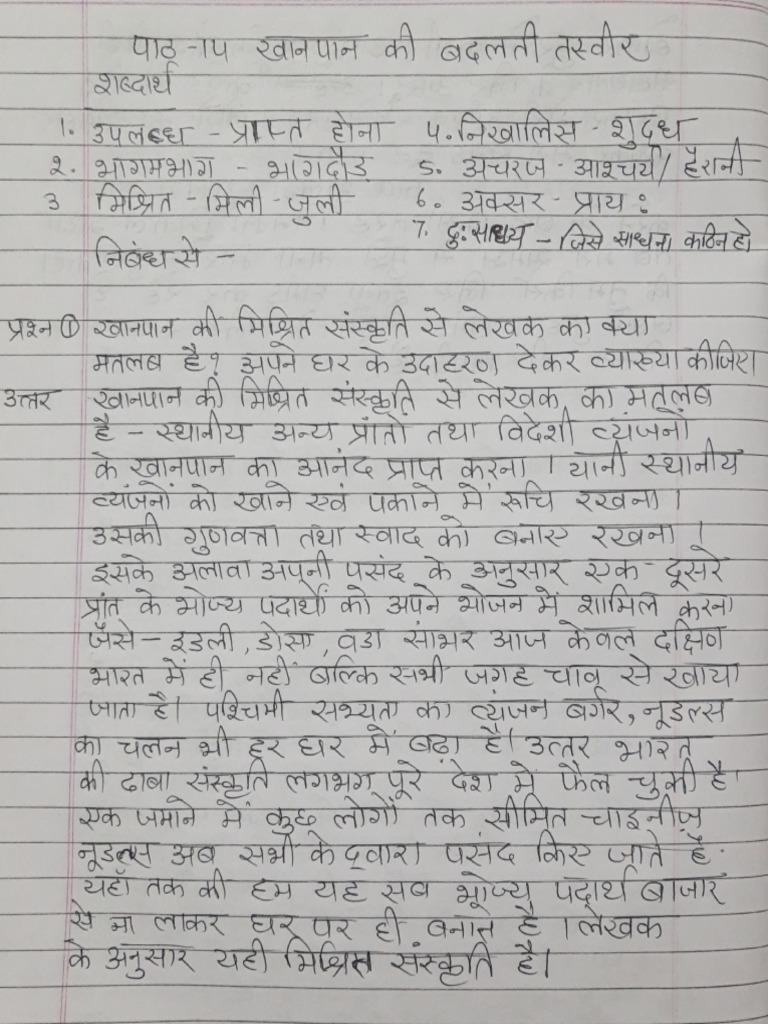 पाठ -14 खानपान की बदलती तस्वीर
शब्दार्थ
1. उपलब्ध - प्राप्त होना 4. निखालिस - शुद्ध
2. भागमभाग - भागदौड़ 5. अचरज - आश्चर्य/हैरानी
3 मिश्रित - मिली - जुली 6. अक्सर - प्राय:
7. दु:साध्य - जिसे साधना कठिन हो
निबंध से -
प्रश्न ① खानपान की मिश्रित संस्कृति से लेखक का क्या
मतलब है? अपने घर के उदाहरण देकर व्याख्या कीजिए
उत्तर खानपान की मिश्रित संस्कृति से लेखक का मतलब
है - स्थानीय अन्य प्रांतो तथा विदेशी व्यंजनों
के खानपान का आनंद प्राप्त करना । यानी स्थानीय
व्यंजनों को खाने एवं पकाने में रूचि रखना ।
उसकी गुणवत्ता तथा स्वाद को बनाए रखना ।
इसके अलावा अपनी पसंद के अनुसार एक - दूसरे
प्रांत के भोज्य पदार्थों को अपने भोजन में शामिल करना
जैसे - इडली, डोसा, वडा सांभर आज केवल दक्षिण
भारत में ही नहीं बल्कि सभी जगह चाव से खाया
जाता है। पश्चिमी सभ्यता का व्यंजन बर्गर, नूडल्स
का चलन भी हर घर में बढ़ा है। उत्तर भारत
की ढाबा संस्कृति लगभग पूरे देश में फैल चुकी है।
एक जमाने में कुछ लोगों तक सीमित चाइनीज़
नूडल्स अब सभी के द्वारा पसंद किए जाते है.
यहाँ तक की हम यह सब भोज्य पदार्थ बाजार
से ना लाकर घर पर ही बनाते है । लेखक
के अनुसार यही मिश्रित संस्कृति है।